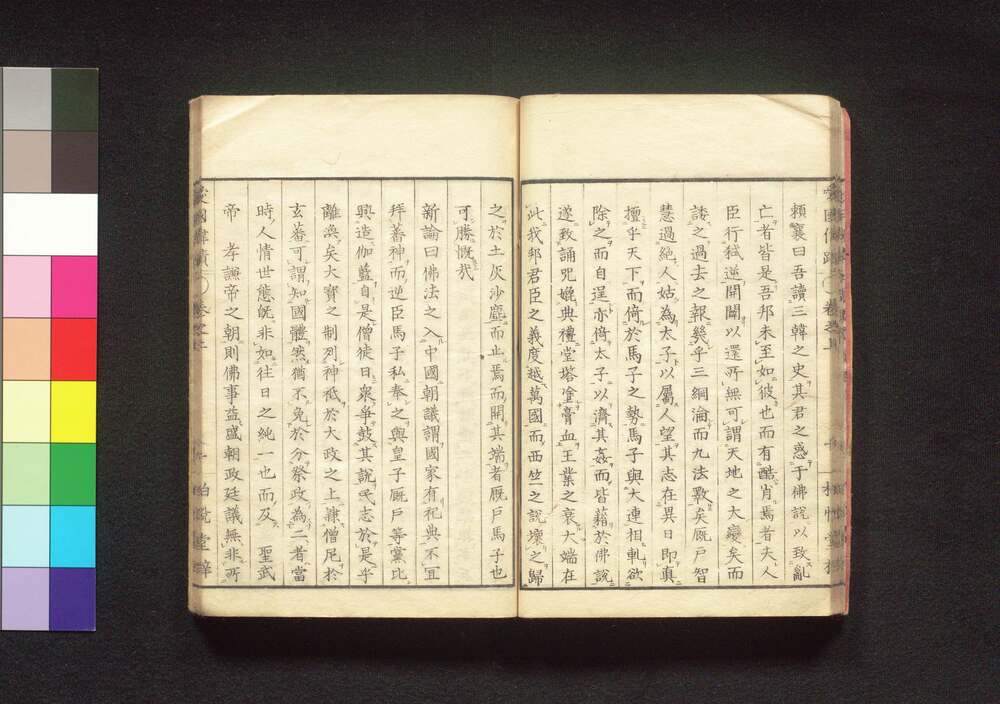 頼襄曰吾讀三韓之史其君之惑于佛説以致亂
亡者皆是吾邦未至如彼也而有酷肖焉者夫人
臣行弑逆開闢以還所無可謂天地之大變矣而
諉之過去之報幾乎三綱淪而九法斁矣厩戸智
慧過絶人姑為太子以屬人望其志在異日即真
擅乎天下而倚於馬子之勢馬子與大連相軋欲
除之而自逞亦倚太子以濟其姦而皆藉於佛説
遂致誦咒媲典禮堂塔塗膏血王業之衰大端在
此我邦君臣之義度越萬國而西竺之説壞之歸
之於土灰沙塵而止焉而開其端者厩戸馬子也
可勝慨哉
新論曰佛法之入中國朝議謂國家有祀典不宜
拜蕃神而逆臣馬子私奉之與皇子厩戸等黨比
興造伽藍自是僧徒日衆爭鼓其説民志於是乎
離渙矣大寶之制列神祗於大政之上隷僧尼於
玄蕃可謂知國體然猶不免於分祭政為二者當
時人情世態既非如往日之純一也而及 聖武
帝 孝謙帝之朝則佛事益盛朝政廷議無非所